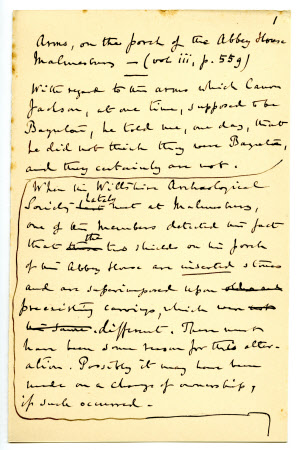 1
Arms, on the porch of the Abbey House
Malmesbury — (vol iii, p. 559)
With regard to the arms which Canon
Jackson, at one time, supposed to be
Baynton, he told me, one day, that
he did not think they were Baynton,
and they certainly are not.
When the Wiltshire Archaeological
lately
Society met at Malmesbury,
one of the members detected the fact
the
that two shields on the porch
of the Abbey House are inserted stones
and are superimposed upon
preexisting carvings, which were not
the same. different. There must
have been some reason for this alter-
ation. Possibly it may have been
made on a change of ownership,
if such occurred —